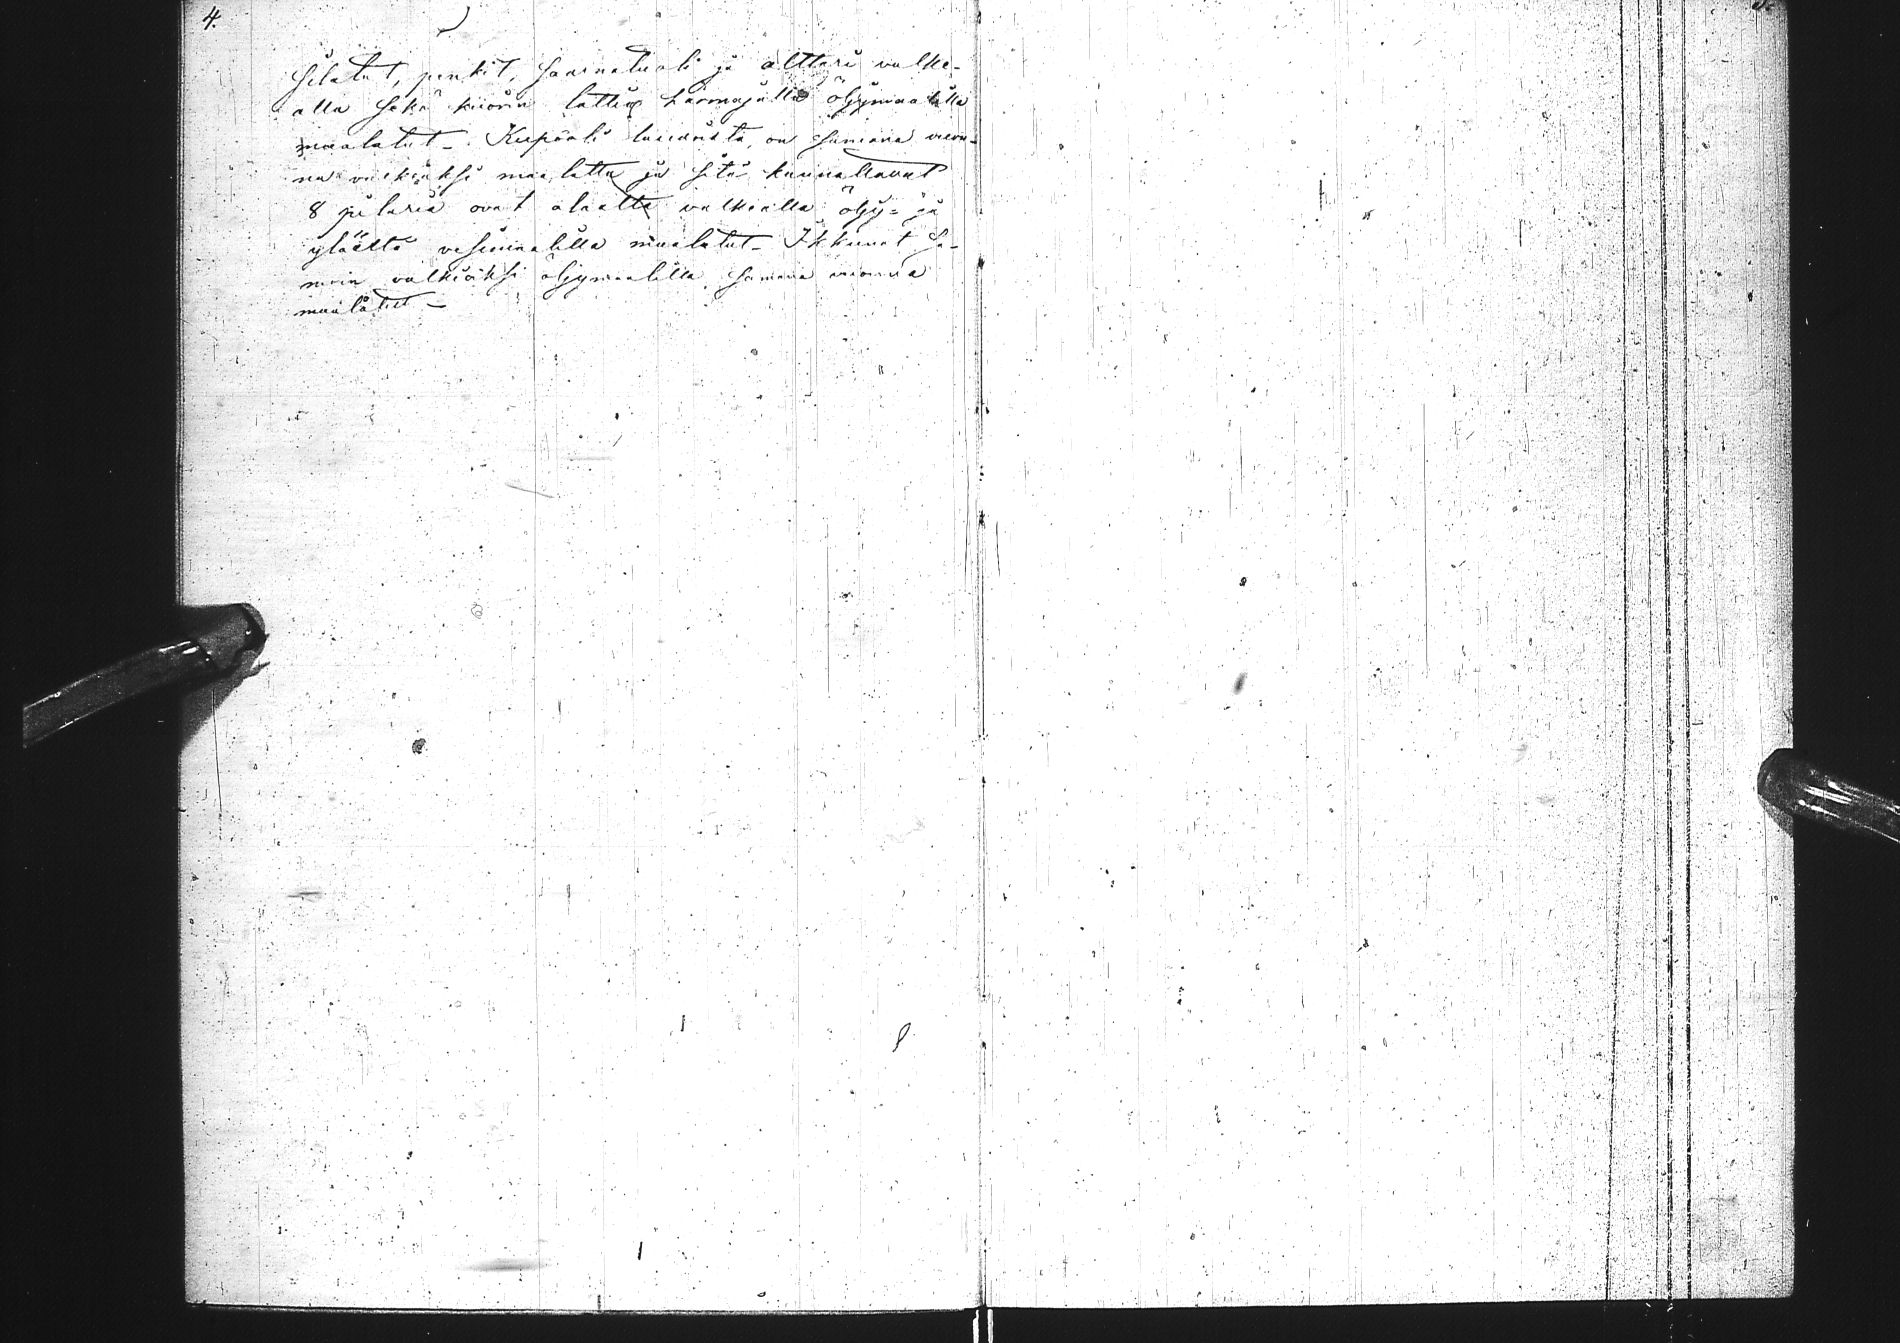 4.
silatut, penkit, saarnatuoli ja alttari valke-
alla sekä kuorin lattia harmajalla öljymaalilla
maalatut_. Kupooli laudoista, on samana vuon-
na valkiaksi maalattu ja sitä kannattavat
8 pilaria ovat alaalta valkialla öljy= ja
yläältä vesimaalilla maalatut_ Ikkunat sa-
moin valkiaksi öljymaalilla samana vuonna
maalatut_